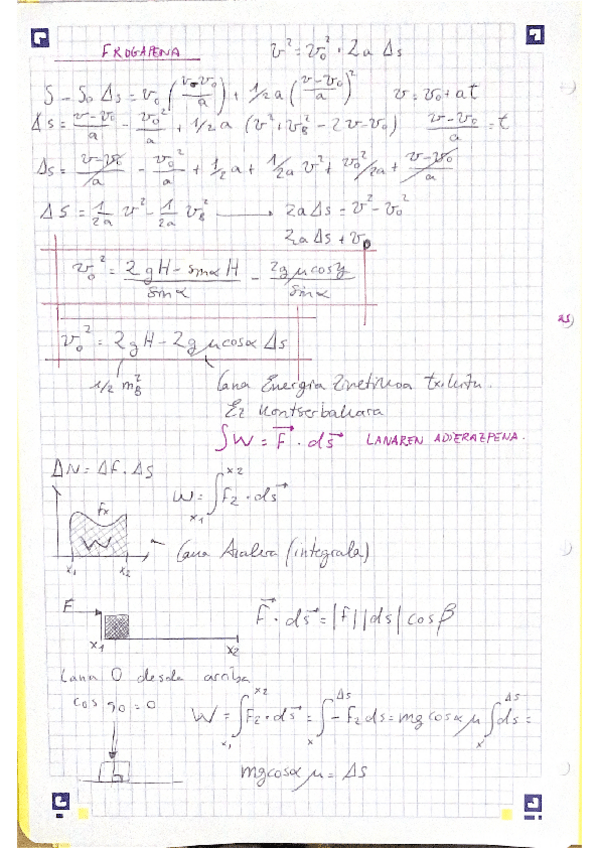 FROGAPENA v² = v₀² · 2a Δs
S - S₀ Δs = v₀ (v-v₀/a) + 1/2 a (v-v₀/a)² v = v₀ + at
Δs = v-v₀/a - v₀²/a + 1/2 a (v² + v₀² - 2v-v₀) v-v₀/a = t
Δs = v-v₀/a - v₀²/a + 1/2 a + 1/2a v² + v₀²/2a + v-v₀/a
Δs = 1/2a v² - 1/2a v₀² → 2aΔs = v² - v₀²
2aΔs + v₀
v₀² = 2gH - sinα H/sinα - 2gμcosy/sinα
v₀² = 2gH - 2gμcosα Δs
1/2 m v₀² Lana Energia Zinetikoa txikitu.
Ez kontserbakorra
∫W = F⃗ · ds⃗ LANAREN ADIERAZPENA.
ΔN = ΔF · ΔS
W = ∫ x₁ x₂ F₂ · ds⃗
Fx
W
x₁ x₂
Lana Azalera (integrala)
F F⃗ · ds⃗ = |F| |ds| cos β
x₁ x₂
Lana 0 desde arriba
cos 90 = 0
W = ∫ x₁ x₂ F₂ · ds⃗ = ∫ x Δs - F₂ ds = mg cosα μ ∫ x Δs ds =
mg cosα μ = Δs
25)